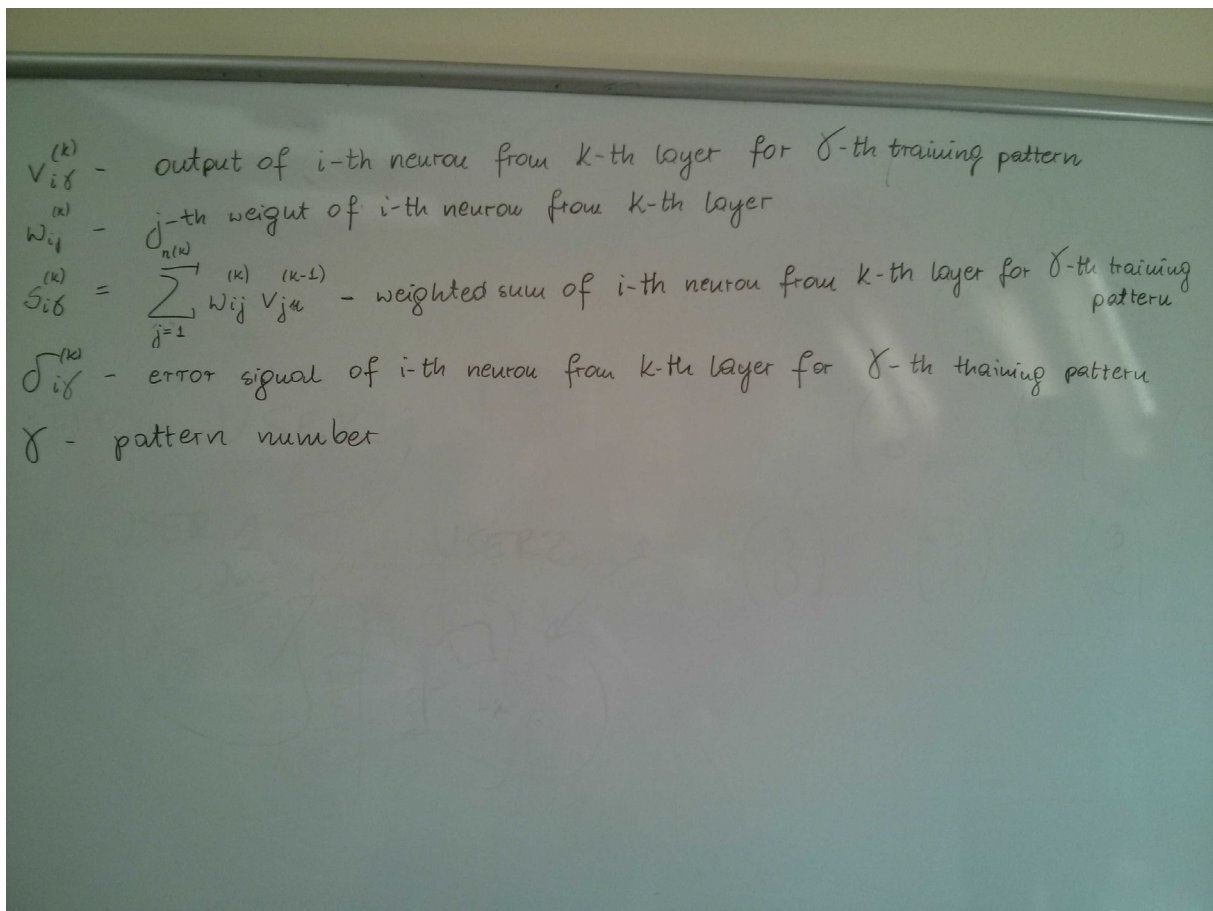 V_{iγ}^{(k)} - output of i-th neuron from k-th layer for γ-th training pattern
W_{ij}^{(k)} - j-th weight of i-th neuron from k-th layer
S_{iγ}^{(k)} = \sum_{j=1}^{n(k)} W_{ij}^{(k)} V_{j}^{(k-1)} - weighted sum of i-th neuron from k-th layer for γ-th training
pattern
δ_{iγ}^{(k)} - error signal of i-th neuron from k-th layer for γ-th thaining pattern
γ - pattern number
USER 1 USER2